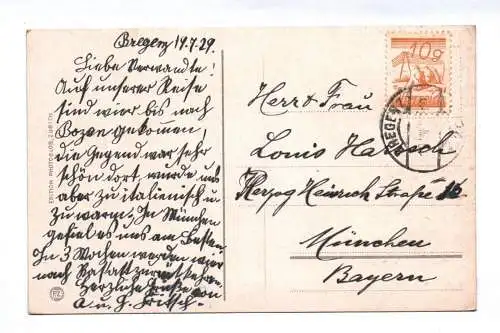 Bregenz 19.7.29.
Liebe Verwandte!
Auf unserer Reise
sind wier bis nach
Bozen gekomen,
die Gegend war sehr
schön dort, wurde uns
aber zu italienisch u.
zu warm. In München
gefiel es uns am Besten
In 3 Wochen werden wir
nach Rastatt zurückkehren.
Herzliche Grüße von
a. u. G. Fritsch.
EDITION PHOTOGLOB, ZÜRICH
10g
BREGENZ
Herr & Frau
Louis
Herzog Heinrich Straße 16
München
Bayern